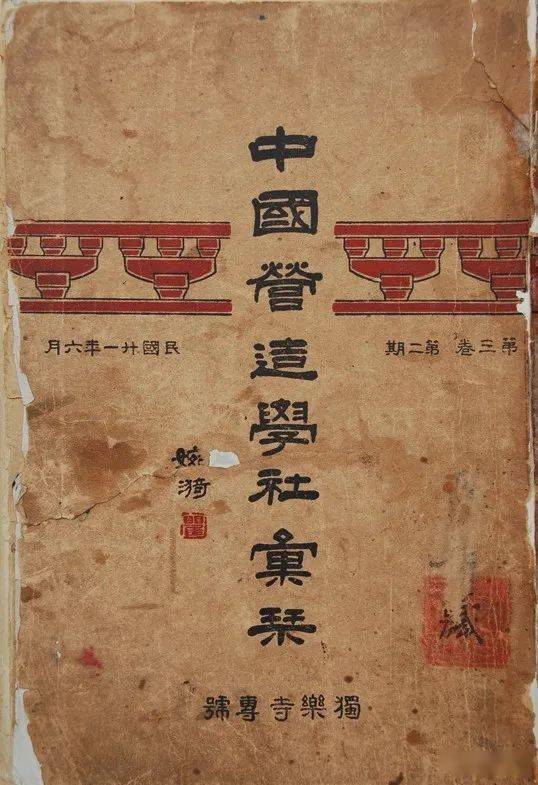 中國營造學社彙栞
第三卷 第二期
民國廿一年六月
獨樂寺專號
藏